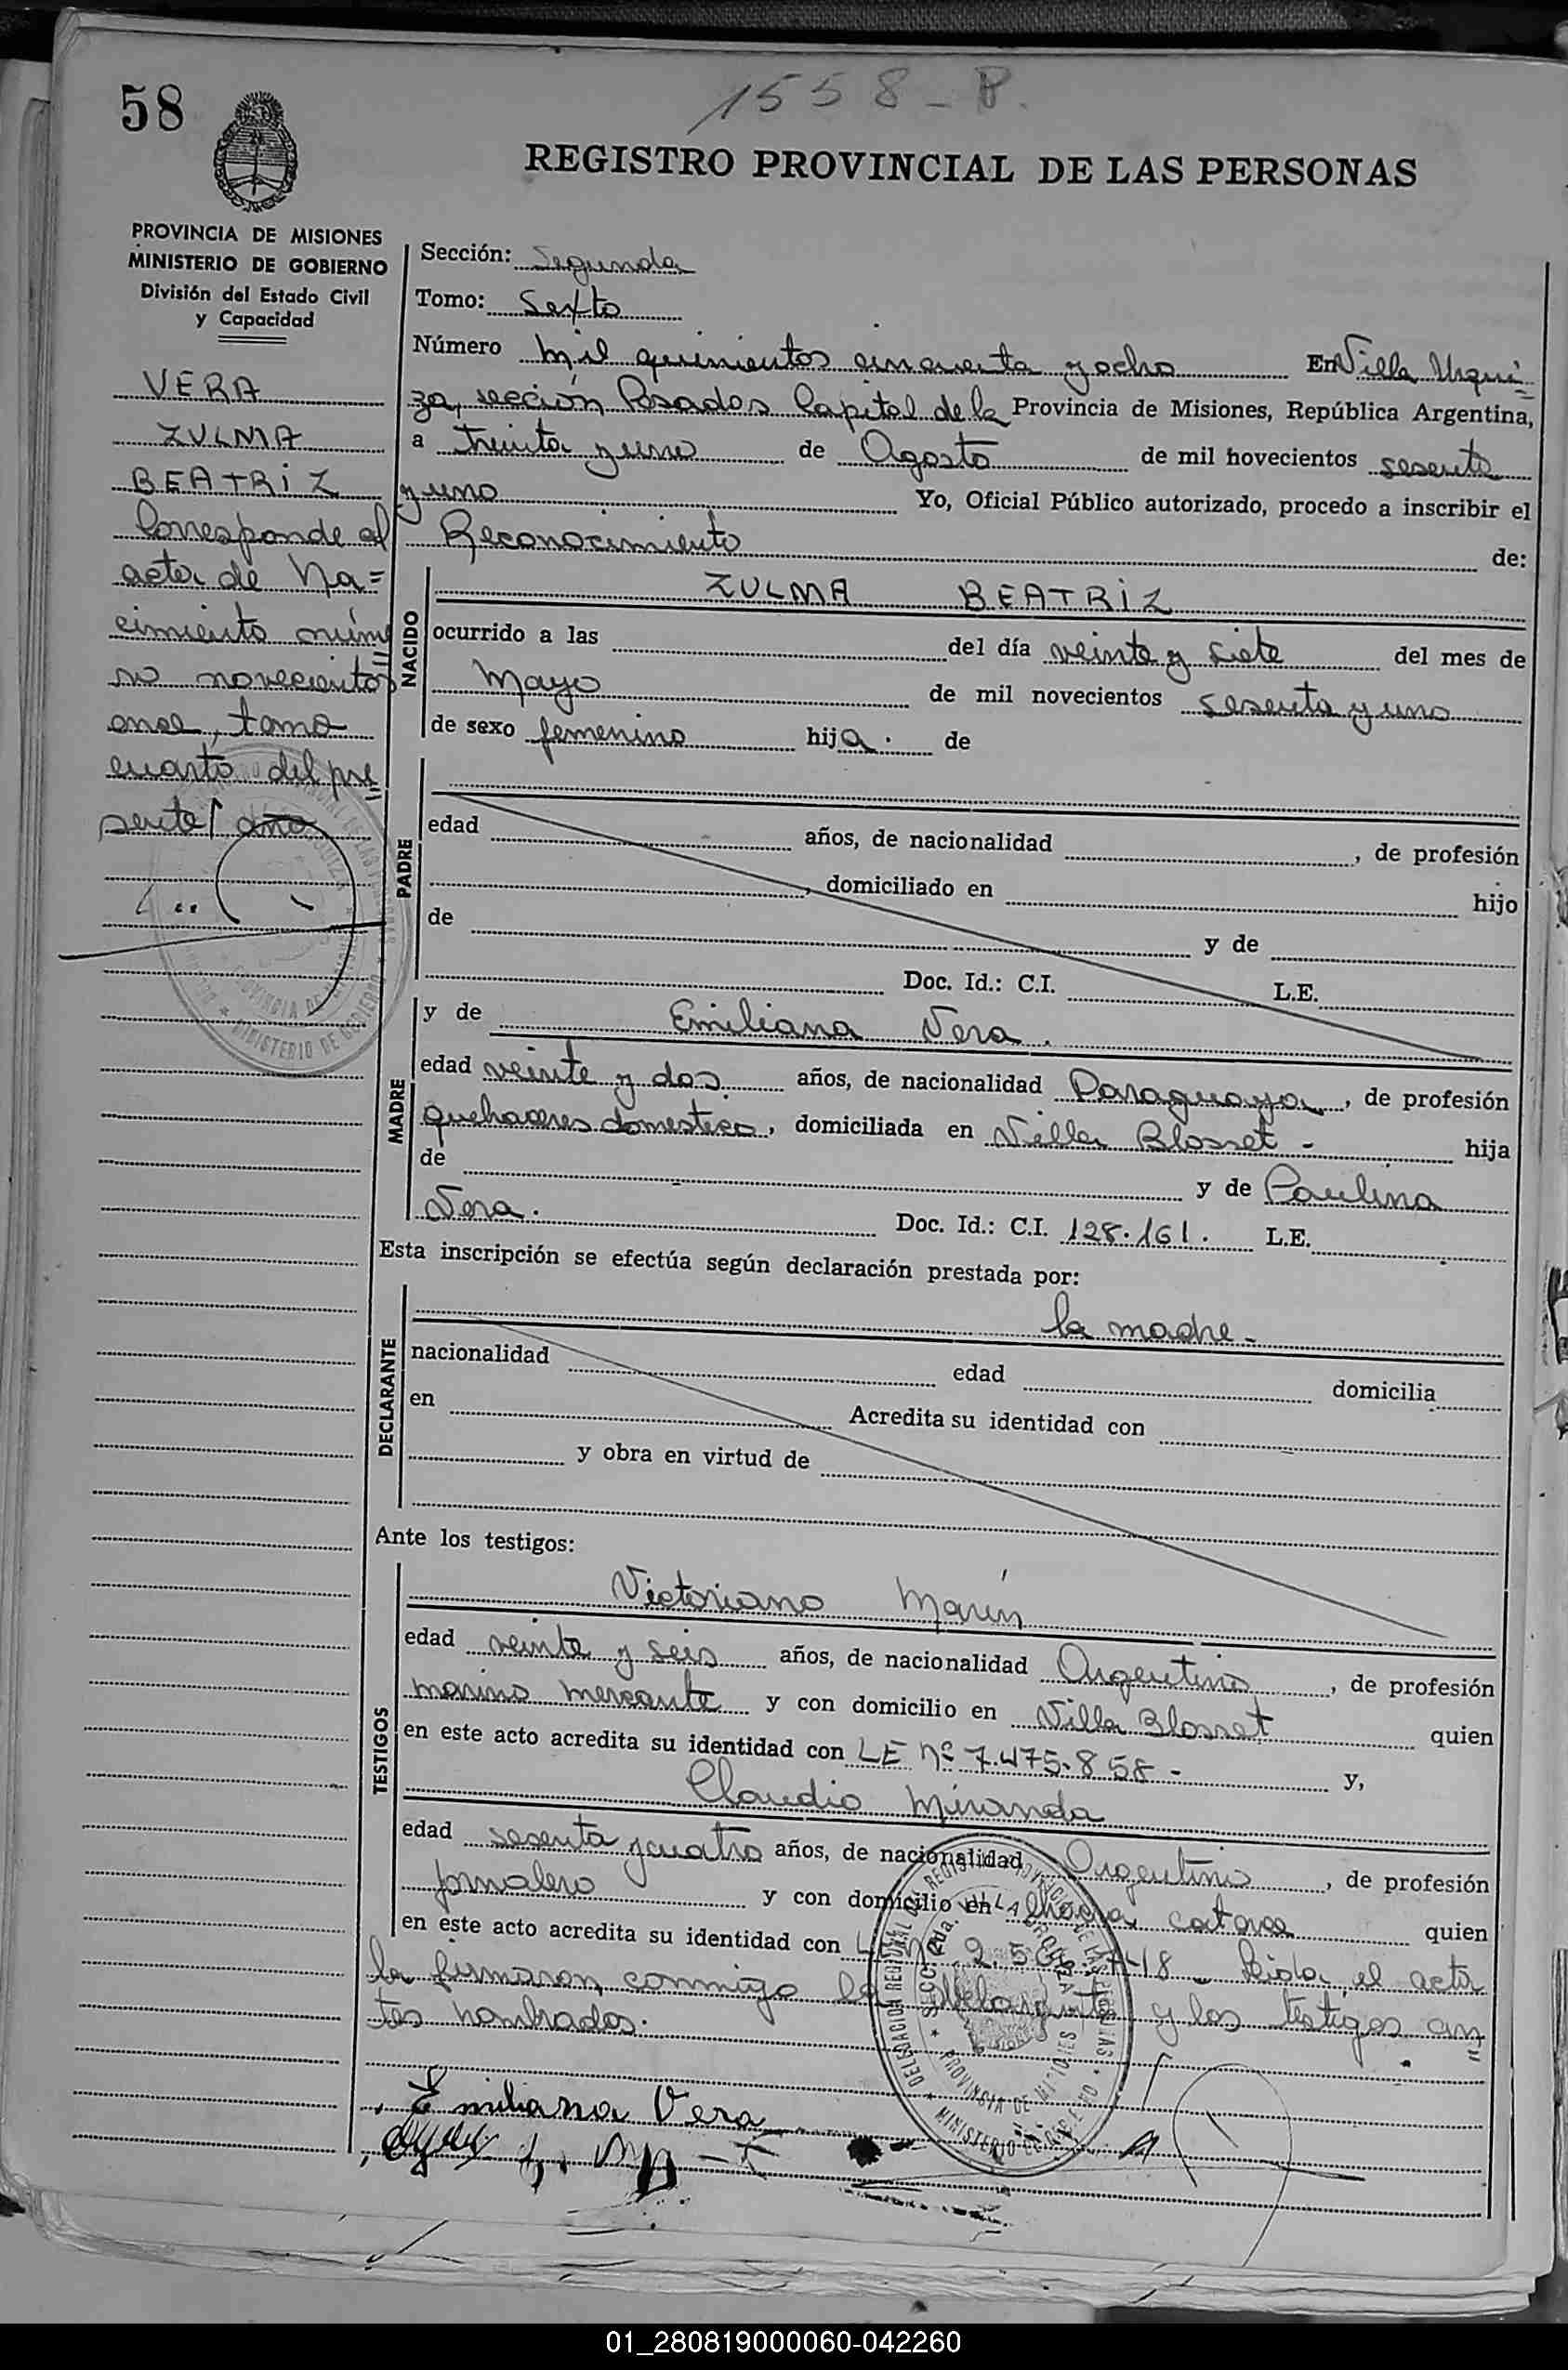 58
1558-P.
REGISTRO PROVINCIAL DE LAS PERSONAS
PROVINCIA DE MISIONES
MINISTERIO DE GOBIERNO
División del Estado Civil
y Capacidad
VERA
ZULMA
BEATRIZ
Corresponde al
acta de Na=
cimiento núme
ro novecientos
once, tomo
cuarto del pre
sente año
Sección: Segunda
Tomo: Sexto
Número mil quinientos cincuenta y ocho En Villa Urqui=
za, sección Posadas Capital de la Provincia de Misiones, República Argentina,
a treinta y uno de Agosto de mil novecientos sesenta
y uno Yo, Oficial Público autorizado, procedo a inscribir el
Reconocimiento de:
NACIDO
ZULMA BEATRIZ
ocurrido a las del día veinte y siete del mes de
Mayo de mil novecientos sesenta y uno
de sexo femenino hija. de
PADRE
edad años, de nacionalidad , de profesión
, domiciliado en hijo
de y de
Doc. Id.: C.I. L.E.
MADRE
y de Emiliana Vera.
edad veinte y dos años, de nacionalidad Paraguaya, de profesión
quehaceres domesticos, domiciliada en Villa Blosset - hija
de y de Paulina
Vera. Doc. Id.: C.I. 128.161. L.E.
Esta inscripción se efectúa según declaración prestada por:
DECLARANTE
la madre-
nacionalidad edad domicilia
en Acredita su identidad con
y obra en virtud de
Ante los testigos:
TESTIGOS
Victoriano Marin
edad veinte y seis años, de nacionalidad Argentino, de profesión
marino mercante y con domicilio en Villa Blosset quien
en este acto acredita su identidad con LE Nº 7.475.858 - y,
Claudio Miranda
edad sesenta y cuatro años, de nacionalidad Argentino, de profesión
jornalero y con domicilio en chacra catorce quien
en este acto acredita su identidad con 748 - Leida el acta
la firmaron conmigo la declarante y los testigos an=
tes nombrados.
Emiliana Vera
01_280819000060-042260